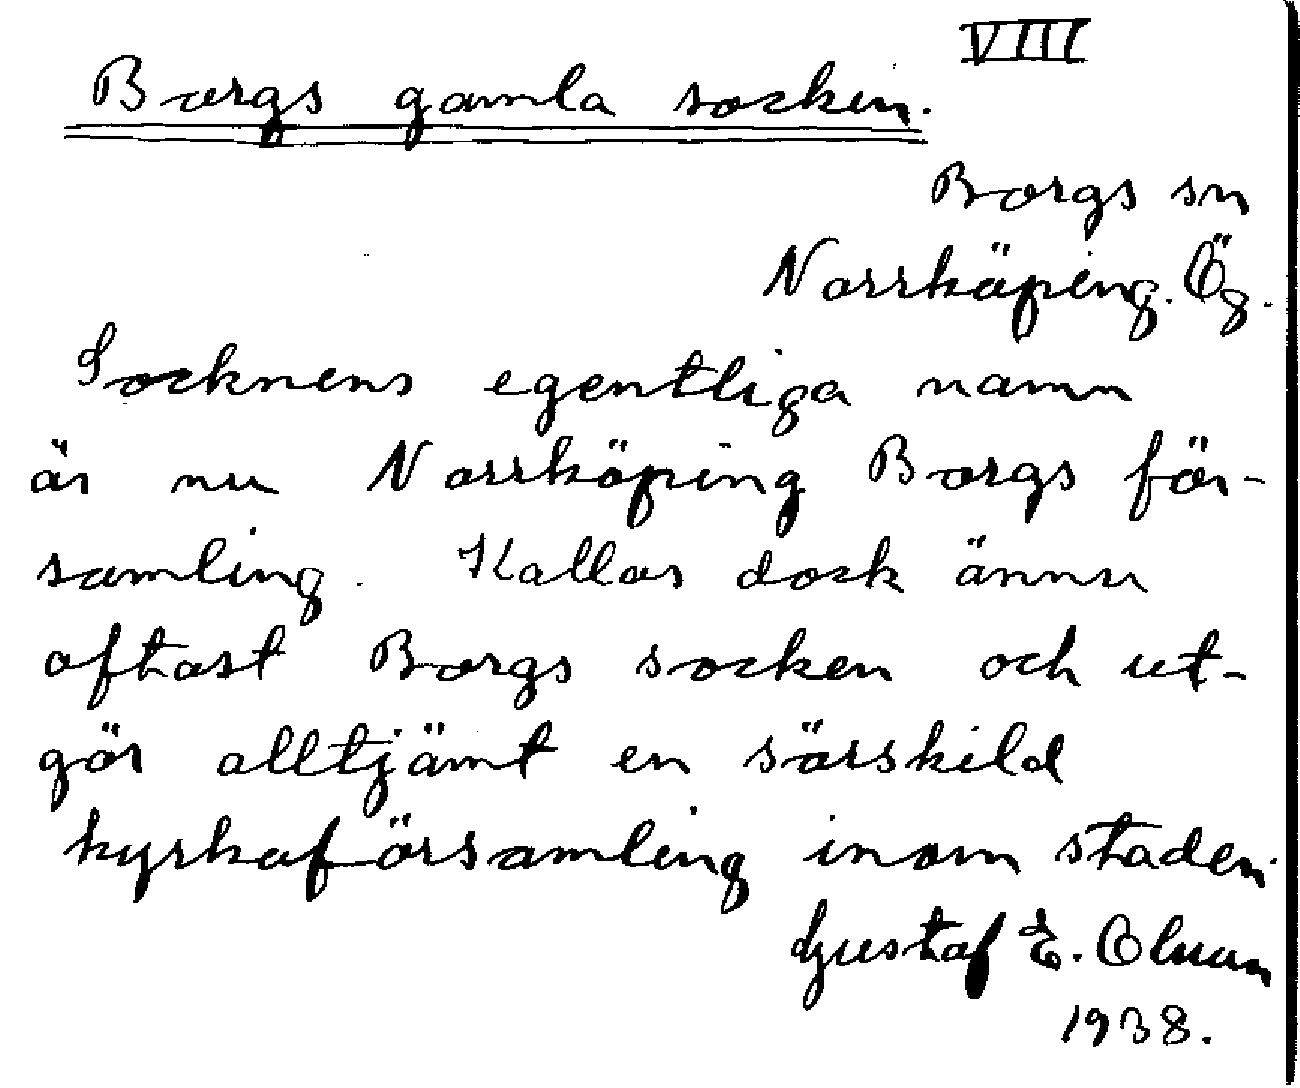 VIII
Borgs gamla socken.
Borgs sn
Norrköping. Ög.
Socknens egentliga namn
är nu Norrköping Borgs för-
samling. Kallas dock ännu
oftast Borgs socken och ut-
gör alltjämt en särskild
kyrkaförsamling inom staden.
Gustaf E. Olsson
1938.